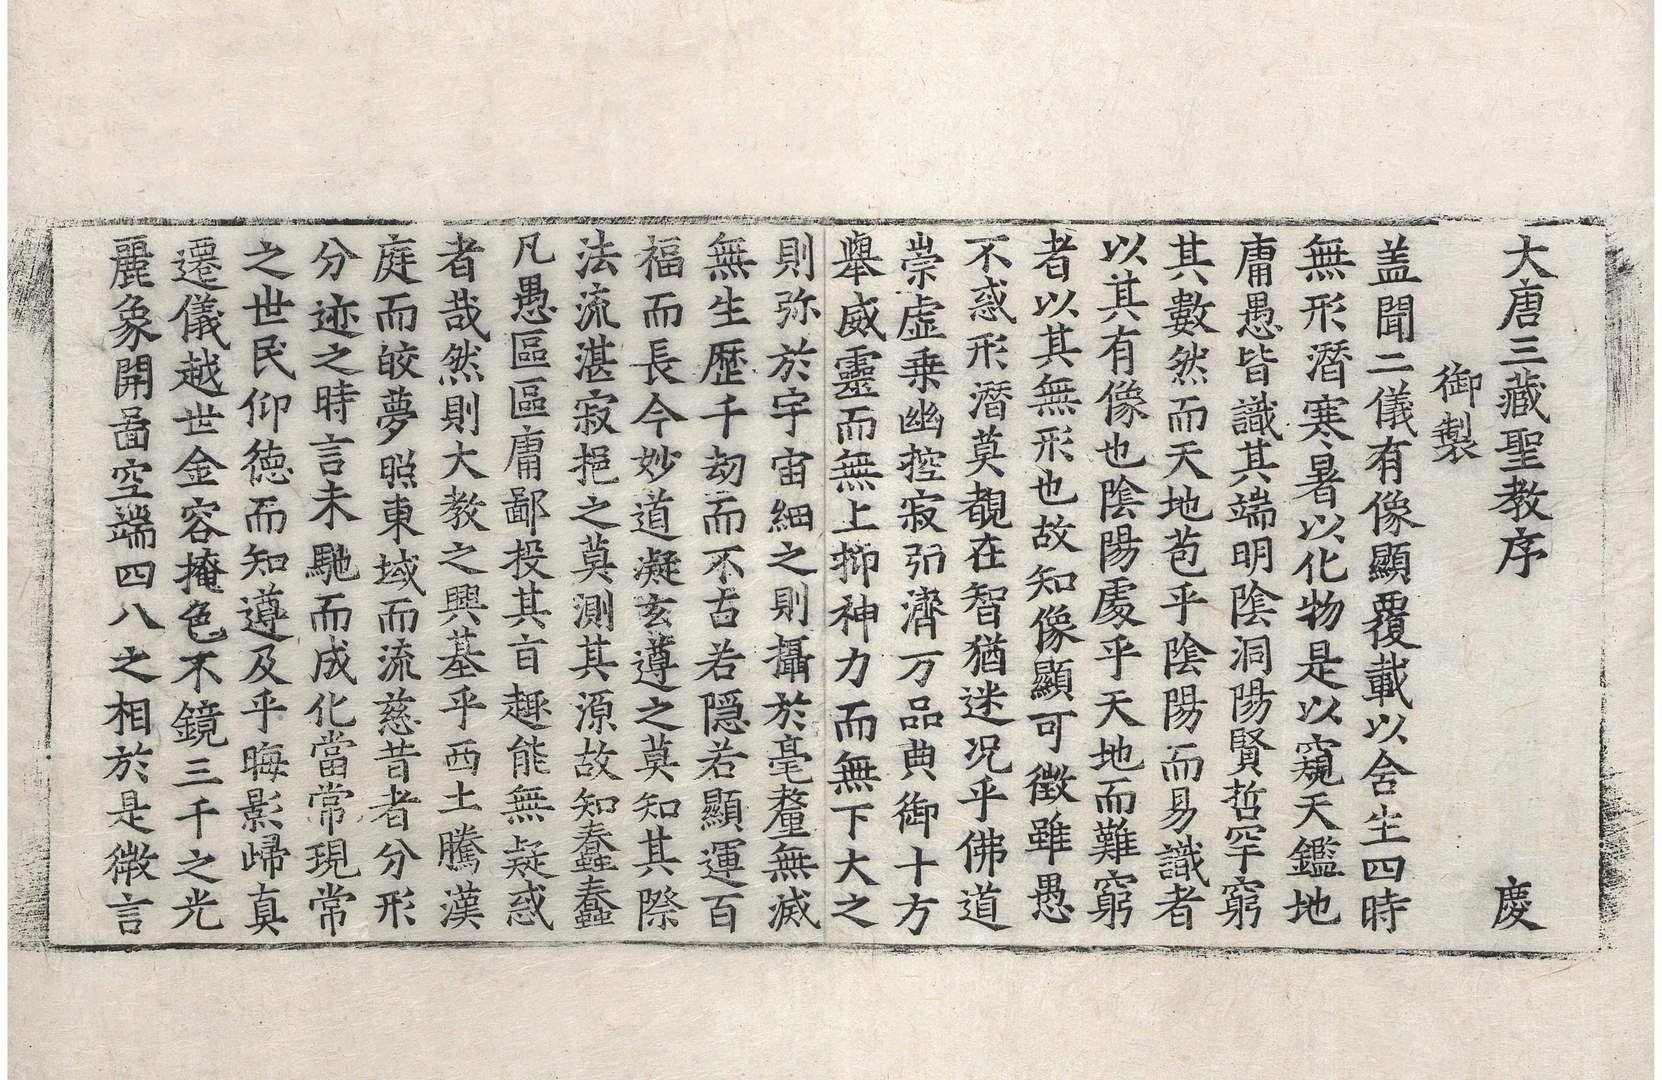 大唐三藏聖教序 慶
御製
盖聞二儀有像顯覆載以含生四時
無形潛寒暑以化物是以窺天鑑地
庸愚皆識其端明陰洞陽賢哲罕窮
其數然而天地苞乎陰陽而易識者
以其有像也陰陽處乎天地而難窮
者以其無形也故知像顯可徵雖愚
不惑形潛莫覩在智猶迷况乎佛道
崇虛乗幽控寂弘濟万品典御十方
舉威靈而無上抑神力而無下大之
則弥於宇宙細之則攝於毫釐無滅
無生歷千劫而不古若隱若顯運百
福而長今妙道凝玄遵之莫知其際
法流湛寂挹之莫測其源故知蠢蠢
凡愚區區庸鄙投其旨趣能無疑惑
者哉然則大教之興基乎西土騰漢
庭而皎夢照東域而流慈昔者分形
分迹之時言未馳而成化當常現常
之世民仰德而知遵及乎晦影歸真
遷儀越世金容掩色不鏡三千之光
麗象開啚空端四八之相於是微言